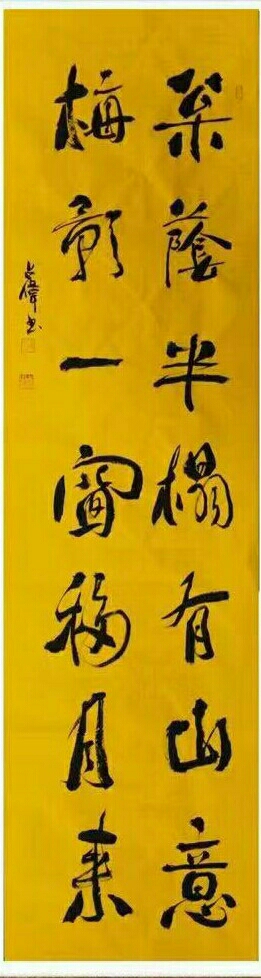 松蔭半榻有山意
梅影一窗移月來